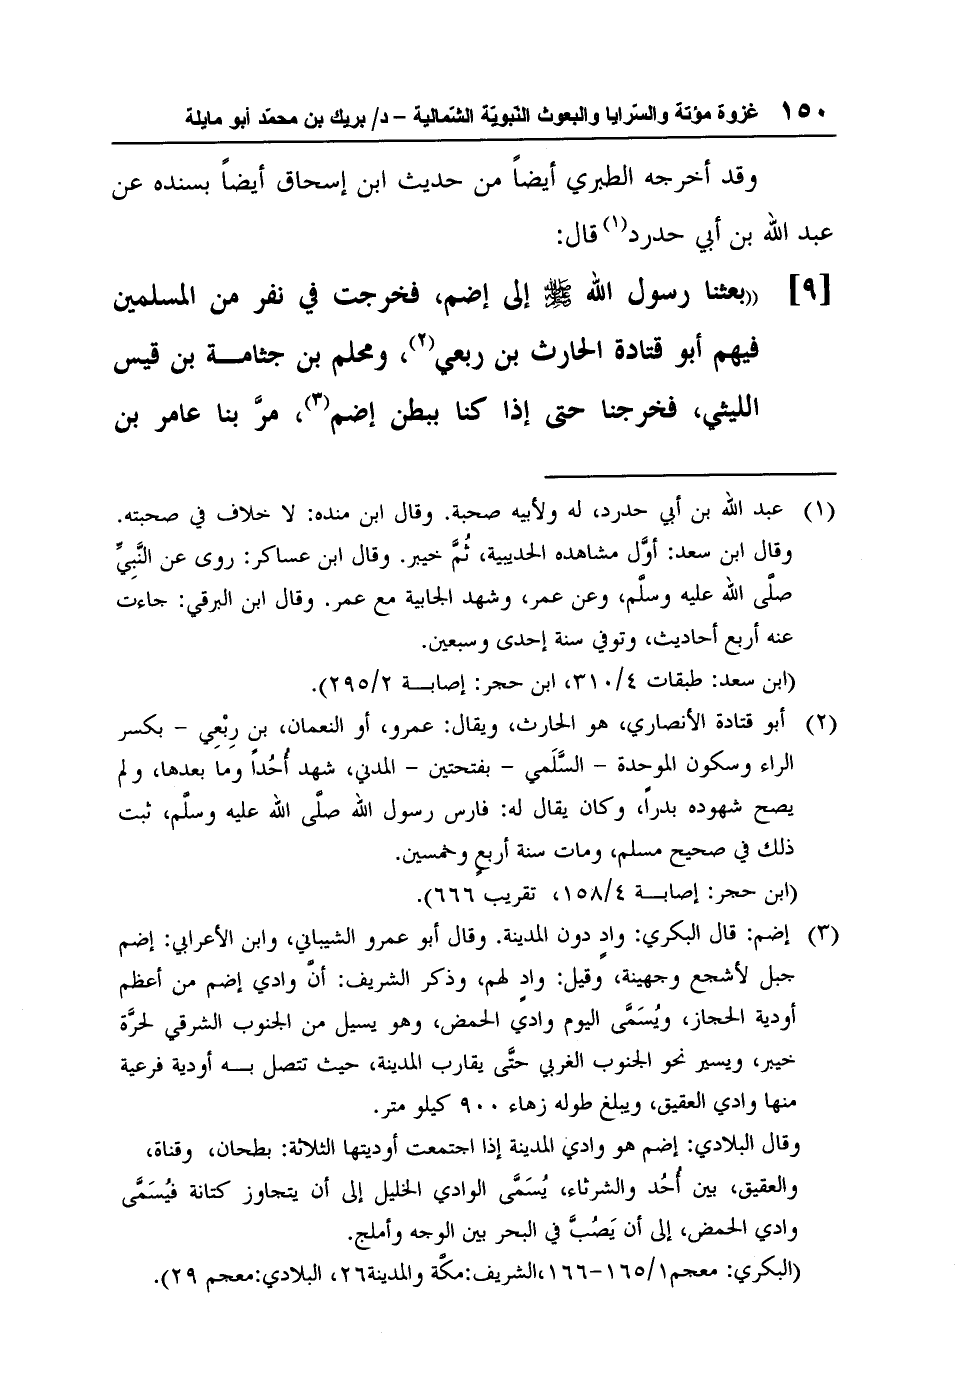 ١٥٠ غزوة مؤتة والسّرايا والبعوث النّبويّة الشّمالية – د/ بريك بن محمّد أبو مايلة
وقد أخرجه الطبري أيضاً من حديث ابن إسحاق أيضاً بسنده عن
عبد الله بن أبي حدرد(١) قال:
[٩] ((بعثنا رسول الله ﷺ إلى إضم، فخرجت في نفر من المسلمين
فيهم أبو قتادة الحارث بن ربعي(٢)، ومحلم بن جثامة بن قيس
الليثي، فخرجنا حتى إذا كنا ببطن إضم(٣)، مرَّ بنا عامر بن
(١) عبد الله بن أبي حدرد، له ولأبيه صحبة. وقال ابن منده: لا خلاف في صحبته.
وقال ابن سعد: أوَّل مشاهده الحديبية، ثُمَّ خيبر. وقال ابن عساكر: روى عن النَّبِيِّ
صلَّى الله عليه وسلَّم، وعن عمر، وشهد الجابية مع عمر. وقال ابن البرقي: جاءت
عنه أربع أحاديث، وتوفي سنة إحدى وسبعين.
(ابن سعد: طبقات ٣١٠/٤، ابن حجر: إصابة ٢٩٥/٢).
(٢) أبو قتادة الأنصاري، هو الحارث، ويقال: عمرو، أو النعمان، بن رِبْعِي – بكسر
الراء وسكون الموحدة – السَّلَمي – بفتحتين – المدني، شهد أُحُداً وما بعدها، ولم
يصح شهوده بدراً، وكان يقال له: فارس رسول الله صلَّى الله عليه وسلَّم، ثبت
ذلك في صحيح مسلم، ومات سنة أربعٍ وخمسين.
(ابن حجر: إصابة ١٥٨/٤، تقريب ٦٦٦).
(٣) إضم: قال البكري: وادٍ دون المدينة. وقال أبو عمرو الشيباني، وابن الأعرابي: إضم
جبل لأشجع وجهينة، وقيل: وادٍ لهم، وذكر الشريف: أنَّ وادي إضم من أعظم
أودية الحجاز، ويُسَمَّى اليوم وادي الحمض، وهو يسيل من الجنوب الشرقي لحرَّة
خيبر، ويسير نحو الجنوب الغربي حتَّى يقارب المدينة، حيث تتصل به أودية فرعية
منها وادي العقيق، ويبلغ طوله زهاء ٩٠٠ كيلو متر.
وقال البلادي: إضم هو وادي المدينة إذا اجتمعت أوديتها الثلاثة: بطحان، وقناة،
والعقيق، بين أُحُد والشرثاء، يُسَمَّى الوادي الخليل إلى أن يتجاوز كتانة فيُسَمَّى
وادي الحمض، إلى أن يَصُبَّ في البحر بين الوجه وأملج.
(البكري: معجم١٦٥/١–١٦٦،الشريف:مكَّة والمدينة٢٦، البلادي:معجم ٢٩).